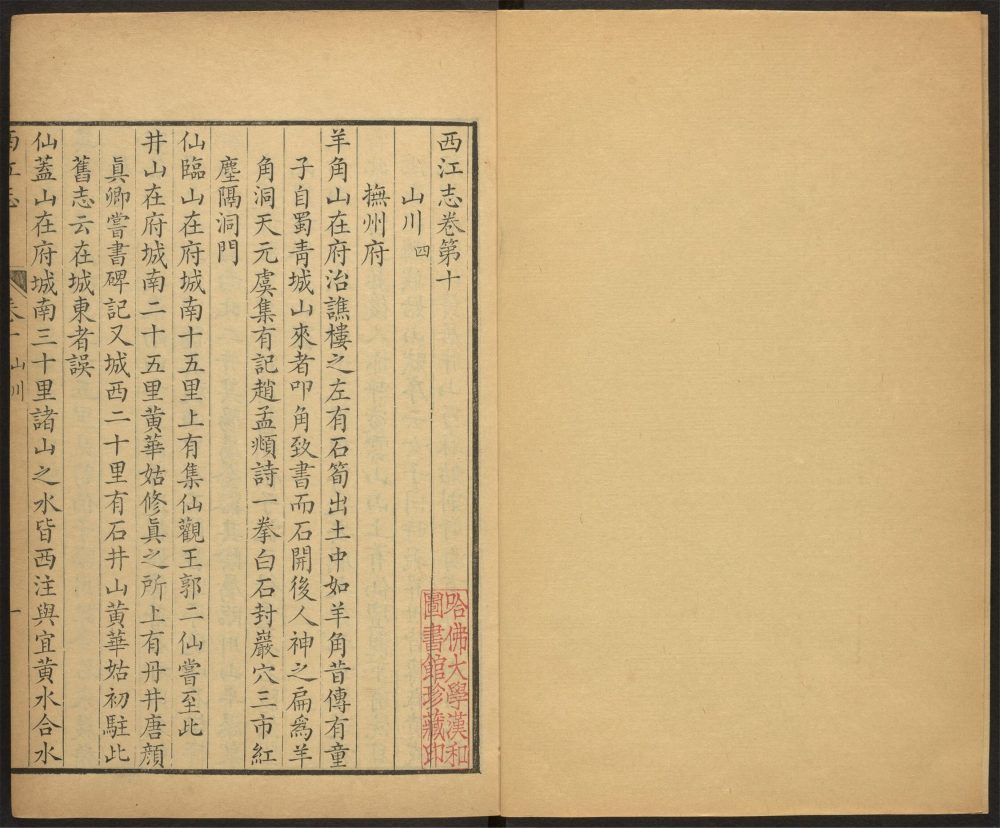 西江志卷第十
山川四
撫州府
羊角山在府治譙樓之左有石筍出土中如羊角昔傳有童
子自蜀靑城山來者叩角致書而石開後人神之扁爲羊
角洞天元虞集有記趙孟頫詩一拳白石封巖穴三市紅
塵隔洞門
仙臨山在府城南十五里上有集仙觀王郭二仙嘗至此
井山在府城南二十五里黃華姑修眞之所上有丹井唐顏
眞卿嘗書碑記又城西二十里有石井山黃華姑初駐此
舊志云在城東者誤
仙蓋山在府城南三十里諸山之水皆西注與宜黃水合水
西江志
卷十山川
一
哈佛大學漢和
圖書館珍藏印